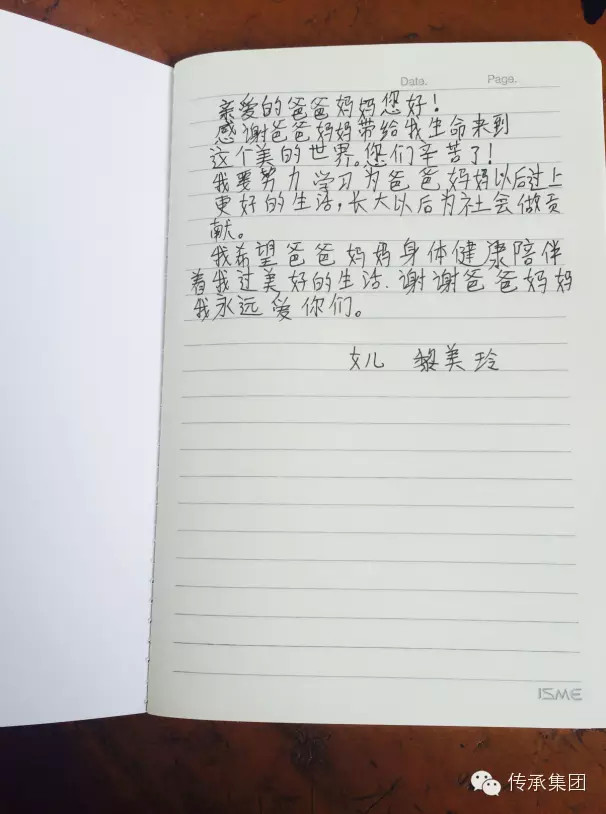 Data.
Page.
亲爱的爸爸妈妈您好！
感谢爸爸妈妈带给我生命来到
这个美的世界。您们辛苦了！
我要努力学习为爸爸妈妈以后过上
更好的生活，长大以后为社会做贡
献。
我希望爸爸妈妈身体健康陪伴
着我过美好的生活.谢谢爸爸妈妈
我永远爱你们。
女儿 黎美玲
ISME
传承集团